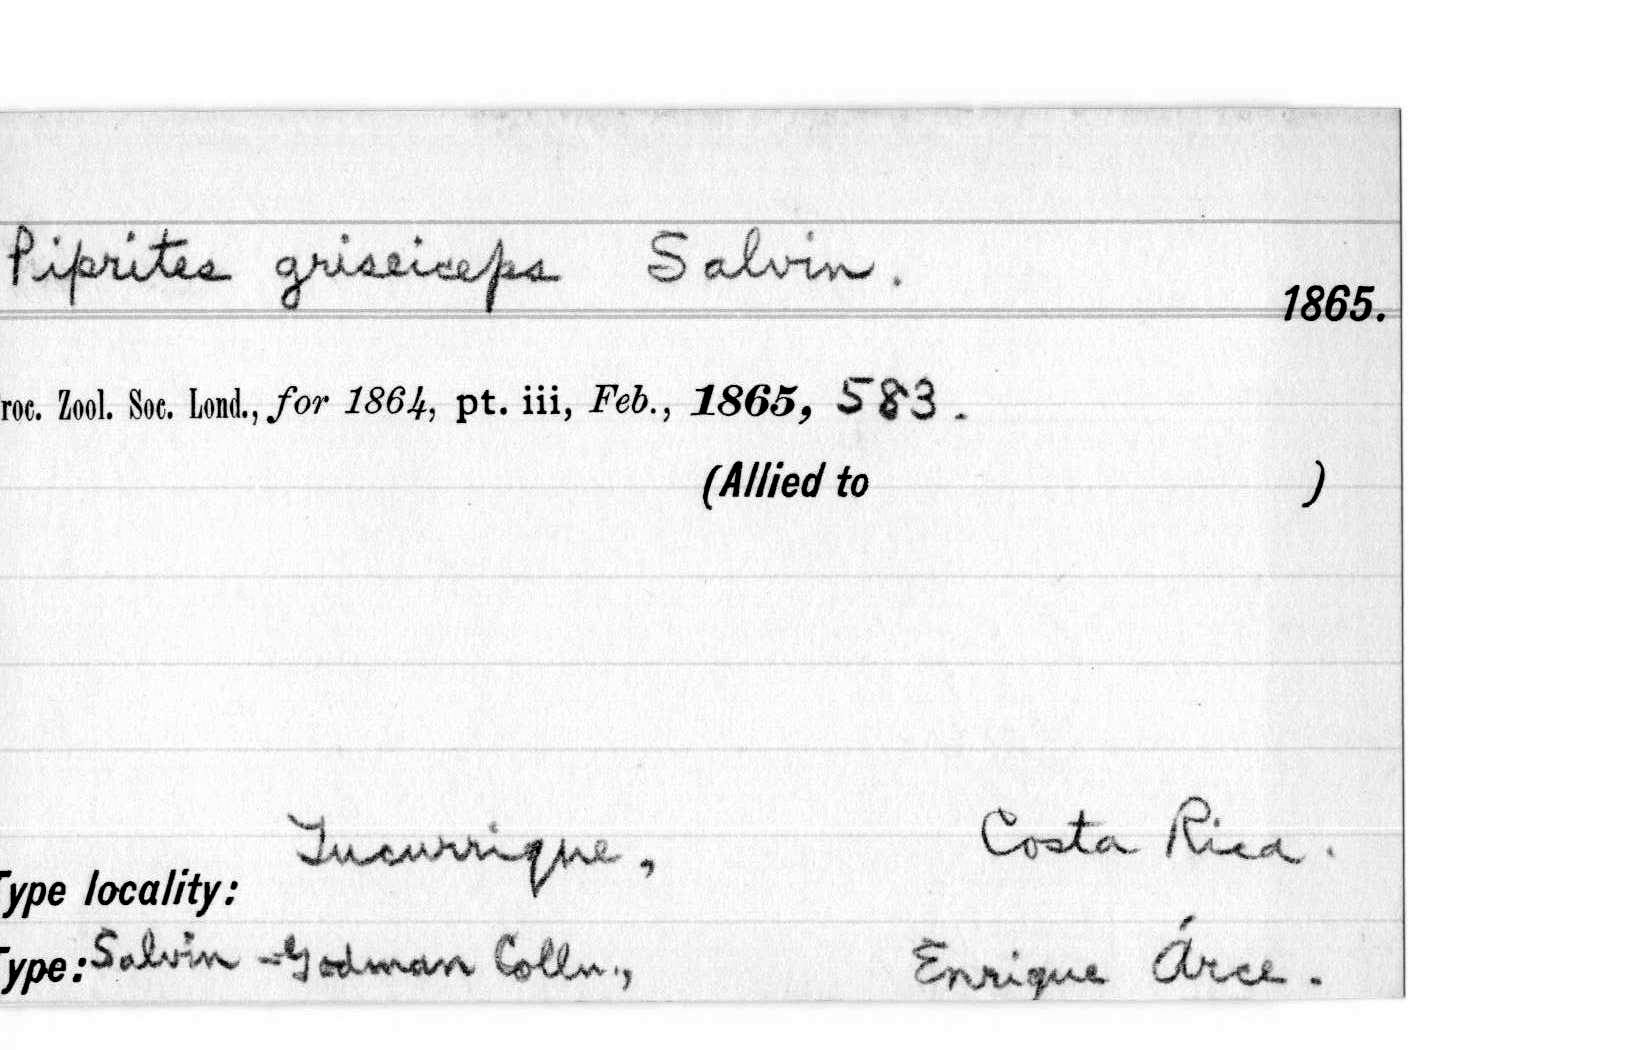 Piprites griseiceps Salvin.
1865.
roc. Zool. Soc. Lond., for 1864, pt. iii, Feb., 1865, 583.
(Allied to )
Tucurrique, Costa Rica.
Type locality:
Type: Salvin-Godman Colln., Enrique Árce.